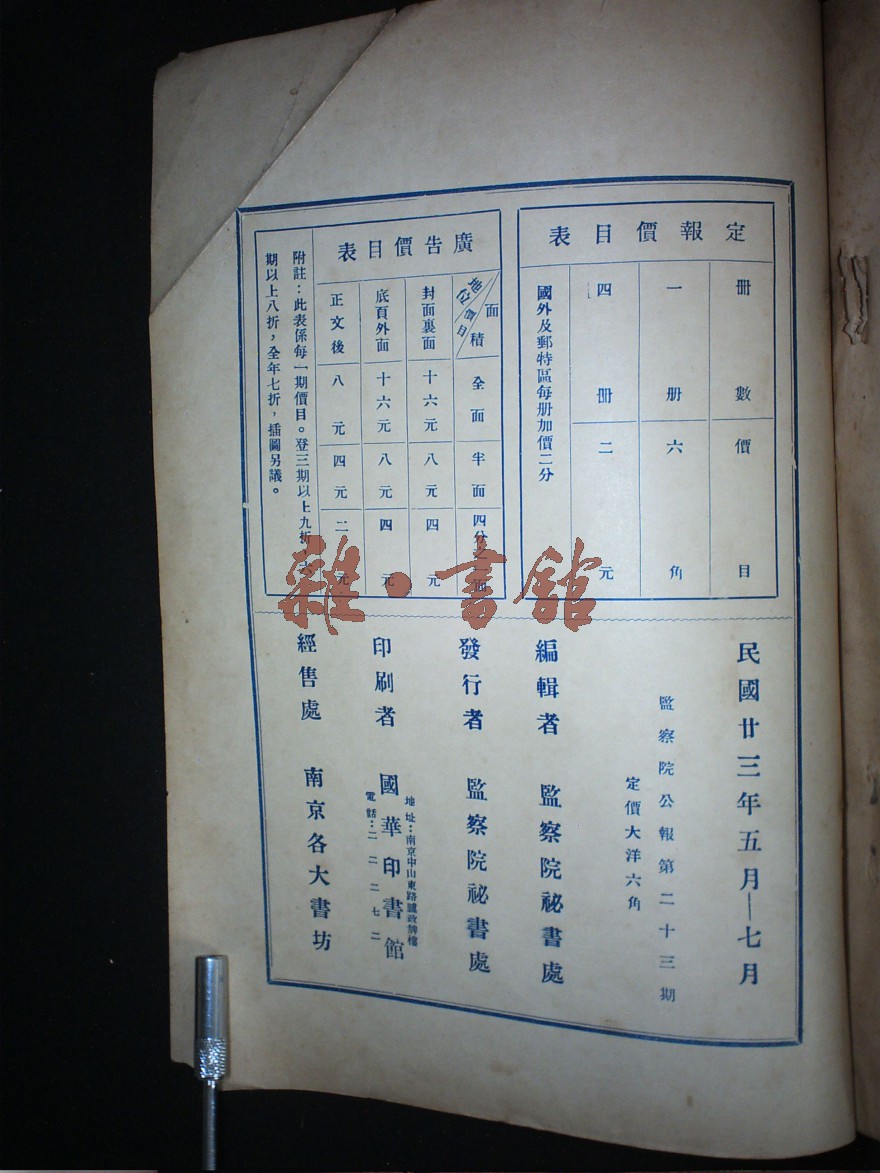 定報價目表
冊數 價目
一冊 六角
四冊 二元
國外及郵特區每册加價二分
廣告價目表
地位 價目 面積 全面 半面 四分之一面
封面裏面 十六元 八元 四元
底頁外面 十六元 八元 四元
正文後 八元 四元 二元
附註：此表係每一期價目。登三期以上九折，六
期以上八折，全年七折，插圖另議。
民國廿三年五月—七月
監察院公報第二十三期
定價大洋六角
編輯者 監察院祕書處
發行者 監察院祕書處
地址：南京中山東路
印刷者 國華印書館
電話：二二二七二
經售處 南京各大書坊
雜·書館